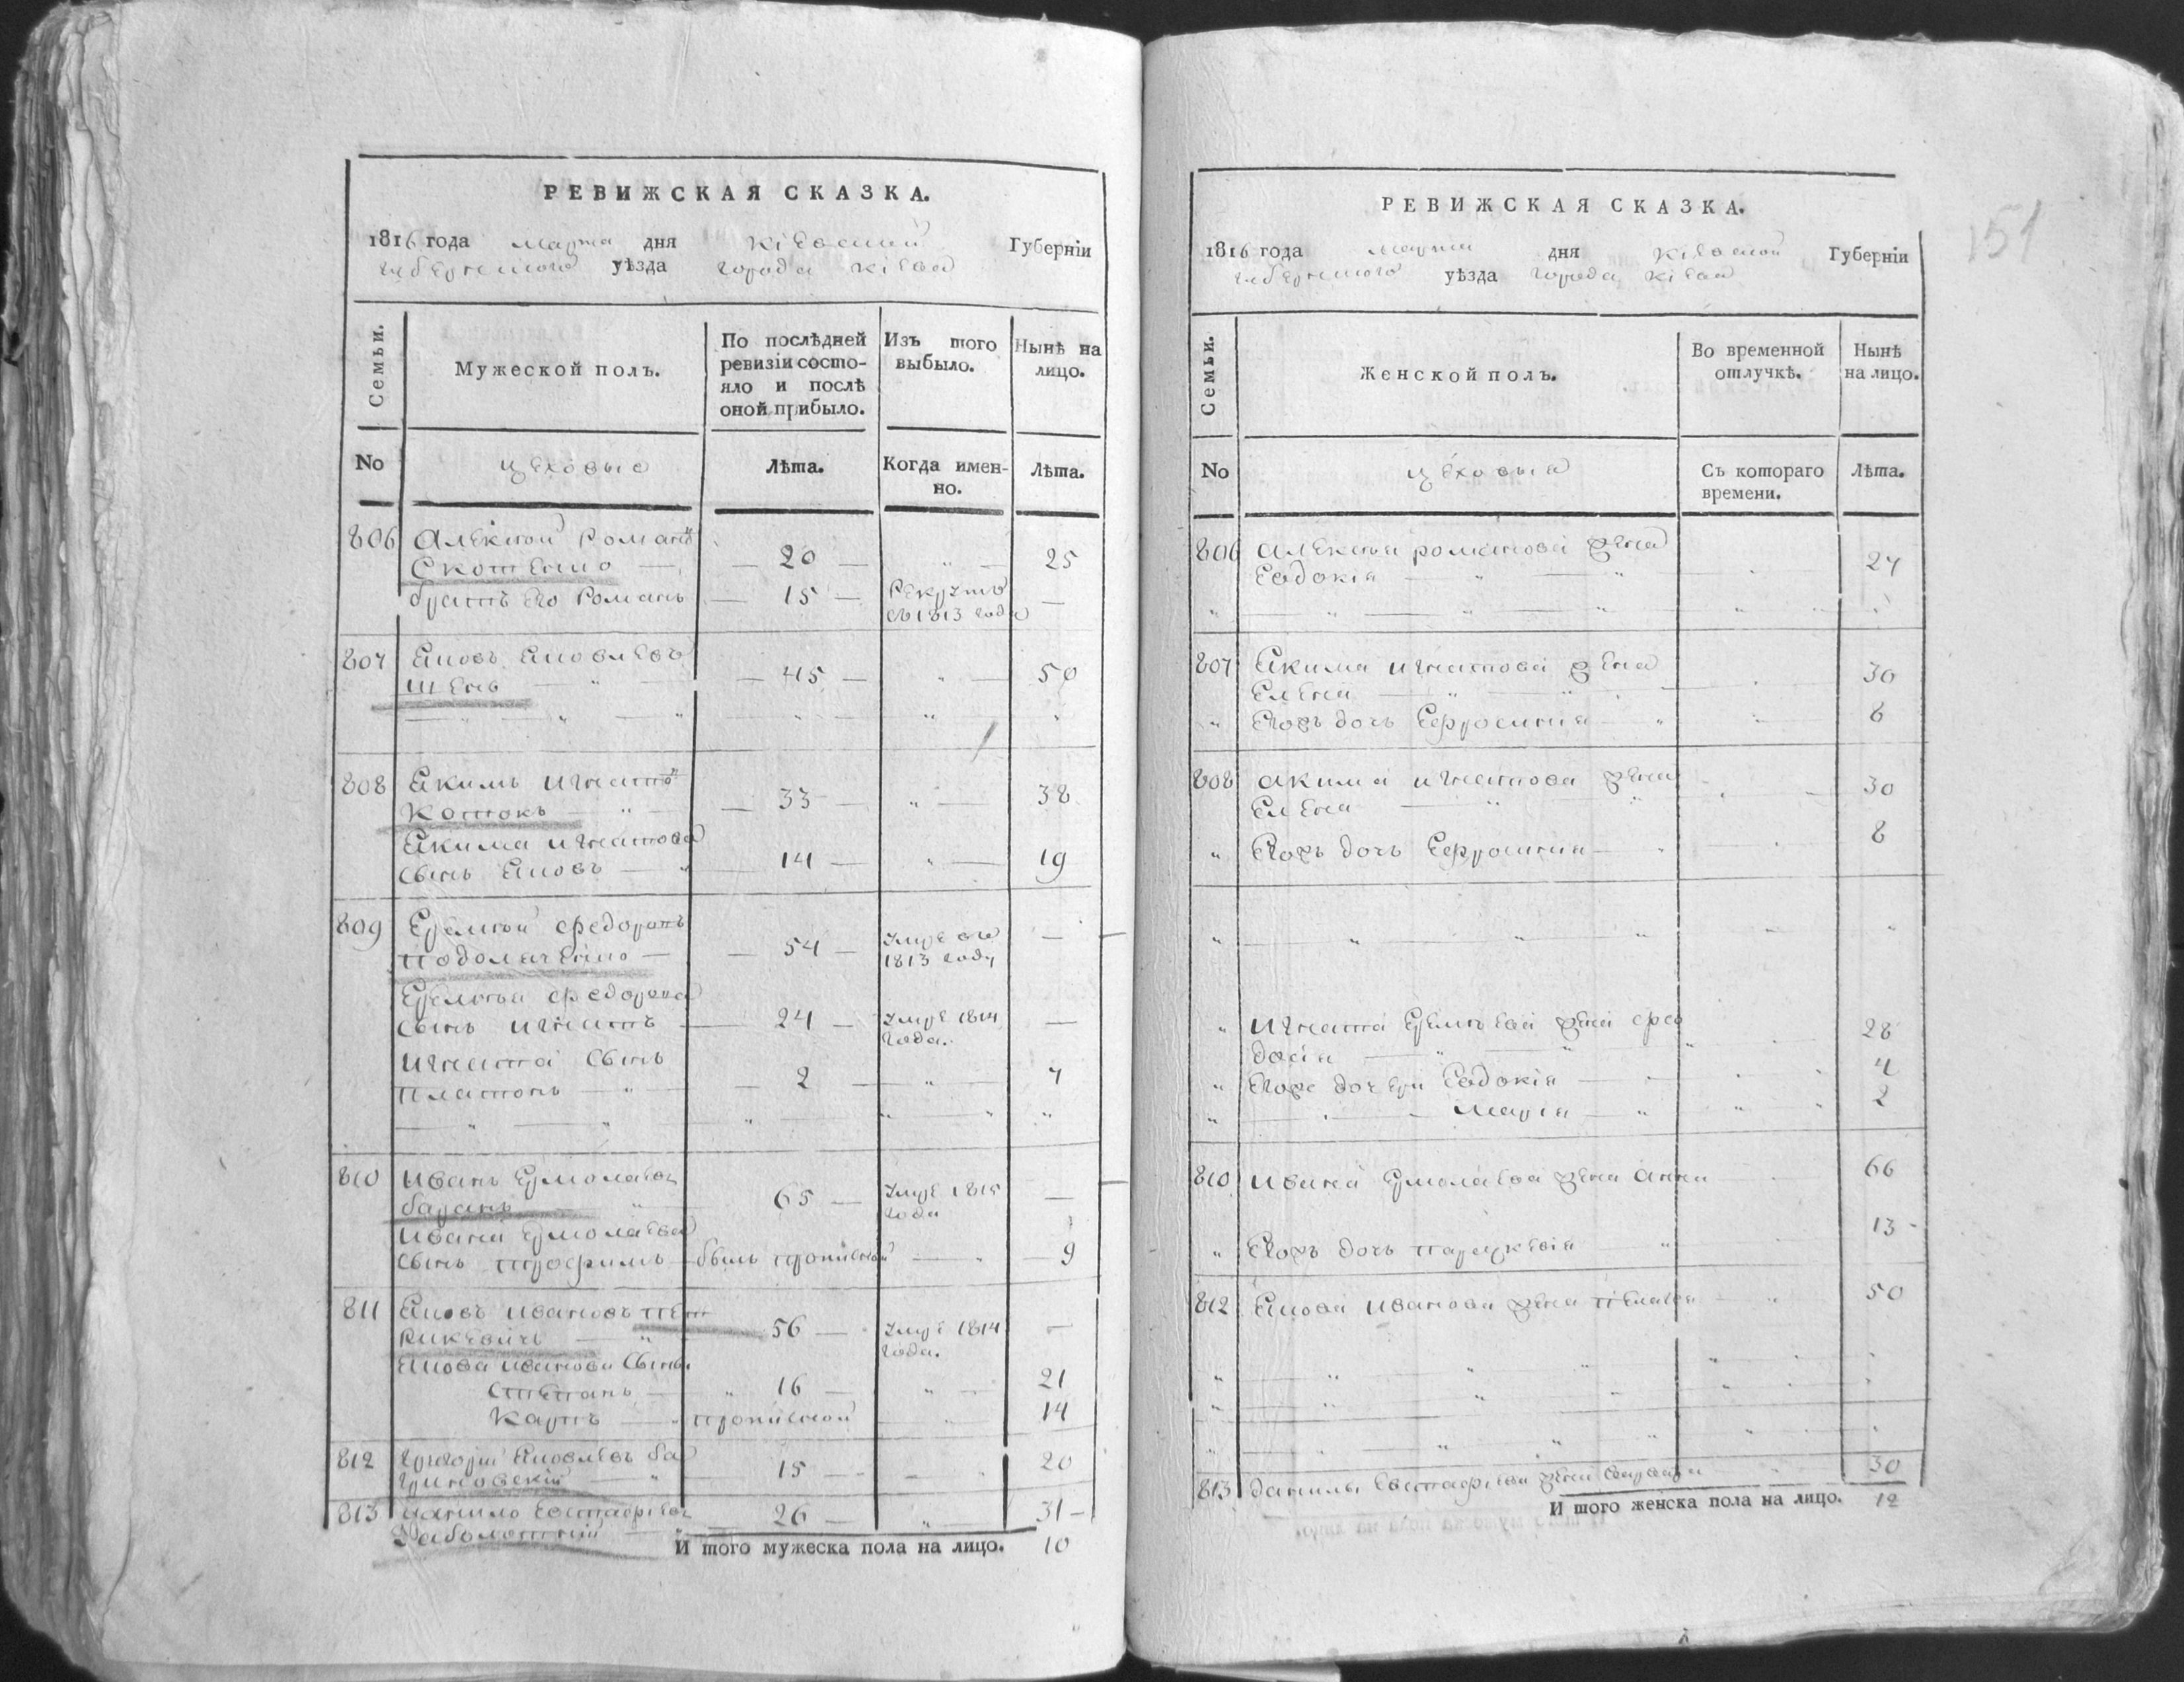 РЕВИЖСКАЯ СКАЗКА.
1816 года марта дня Кіевской Губерніи
губернского уѣзда города Кіева
Семьи.
Мужеской полъ.
По послѣдней ревизіи состояло и послѣ оной прибыло.
Изъ того выбыло.
Нынѣ на лицо.
No
цеховые
Лѣта.
Когда именно.
Лѣта.
806 Алексѣй Романо
— 20 — „ — 25
братъ его Романъ — 15 — Рекрутъ —
съ 1813 года
807 Яковъ Яковлевъ
Шень — „ — 45 — „ — 50
808 Екимъ Игнато
Котокъ — „ — 33 — „ — 38
Екима Игнатова
сынъ Яковъ — „ 14 — „ — 19
809 Еремѣй Федоровъ
— 54 — умре въ —
1813 году
Еремѣя Федорова
сынъ Игнатъ — 24 — умре 1814 —
года.
Игната сынъ
Платонъ — „ — 2 — „ — 7
810 Иванъ Ермолаевъ
баранъ — „ 65 — умре 1815 —
года
Ивана Ермолаева
сынъ Трофимъ — былъ прописной — „ — 9
811 Яковъ Ивановъ Пет
рикевичъ — „ 56 — умре 1814 —
года.
Якова Иванова сынъ
Степанъ — „ 16 — „ — 21
Карпъ — „ прописной „ 14
812 Григорій Яковлевъ Ба
— „ 15 — „ 20
813 Данило Евстафіевъ
26 — „ — 31 —
Заболотній
И того мужеска пола на лицо. 10
151
РЕВИЖСКАЯ СКАЗКА.
1816 года марта дня Кіевской Губерніи
губернского уѣзда города Кіева
Семьи.
Женской полъ.
Во временной отлучкѣ.
Нынѣ на лицо.
No
цеховыя
Съ котораго времени.
Лѣта.
806 Алексѣя Романова жена
Евдокія — „ — „ 27
807 Екима Игнатова жена
Елена — „ — „ 30
„ Ехъ дочь Ефросинія — „ 8
808 Акима Игнатова жена
Елена — „ — „ 30
„ Ехъ дочь Ефросинія — „ 8
„ Игната Еремѣева жена Фео
досія — „ — „ 28
„ дочери Евдокія — 4
„ Марія — „ 2
810 Ивана Ермолаева жена Анна 66
„ дочь Параскевія „ 13 -
812 Якова Иванова жена Пелагея „ 50
813 Данилы Евстафіева жена Варвара 30
И того женска пола на лицо. 12